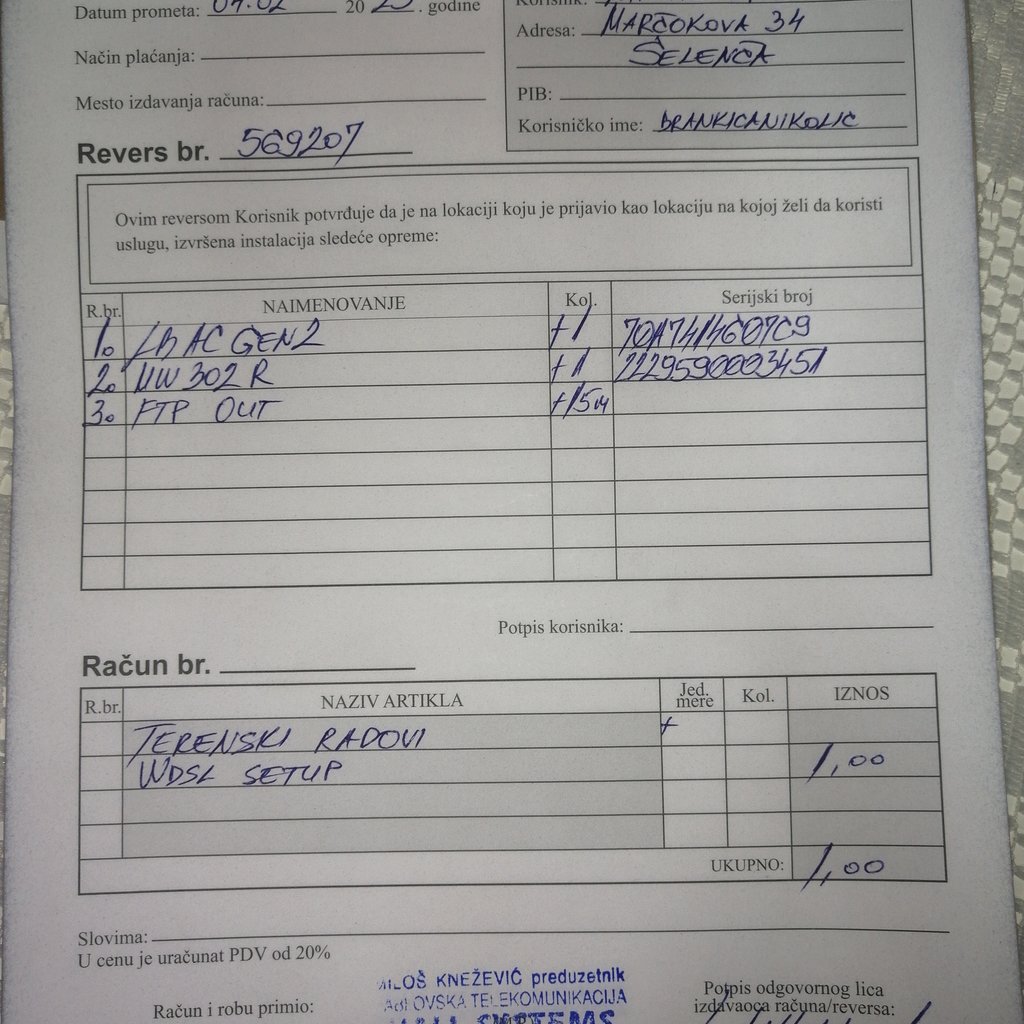 Datum prometa: 04.02 2025. godine
Način plaćanja:
Mesto izdavanja računa:
Adresa: MARČOKOVA 34
SELENČA
PIB:
Korisničko ime: BRANKICANIKOLIC
Revers br. 569207
Ovim reversom Korisnik potvrđuje da je na lokaciji koju je prijavio kao lokaciju na kojoj želi da koristi
uslugu, izvršena instalacija sledeće opreme:
R.br. NAIMENOVANJE Kol. Serijski broj
1. LB AC GEN2 +1
2. MW302R +1 2229590003451
3. FTP OUT +15M
Potpis korisnika:
Račun br.
R.br. NAZIV ARTIKLA Jed. mere Kol. IZNOS
TERENSKI RADOVI +
WDSL SETUP 1,00
UKUPNO: 1,00
Slovima:
U cenu je uračunat PDV od 20%
MILOŠ KNEŽEVIĆ preduzetnik
TELEKOMUNIKACIJA
SYSTEMS
Račun i robu primio:
Potpis odgovornog lica
izdavaoca računa/reversa: